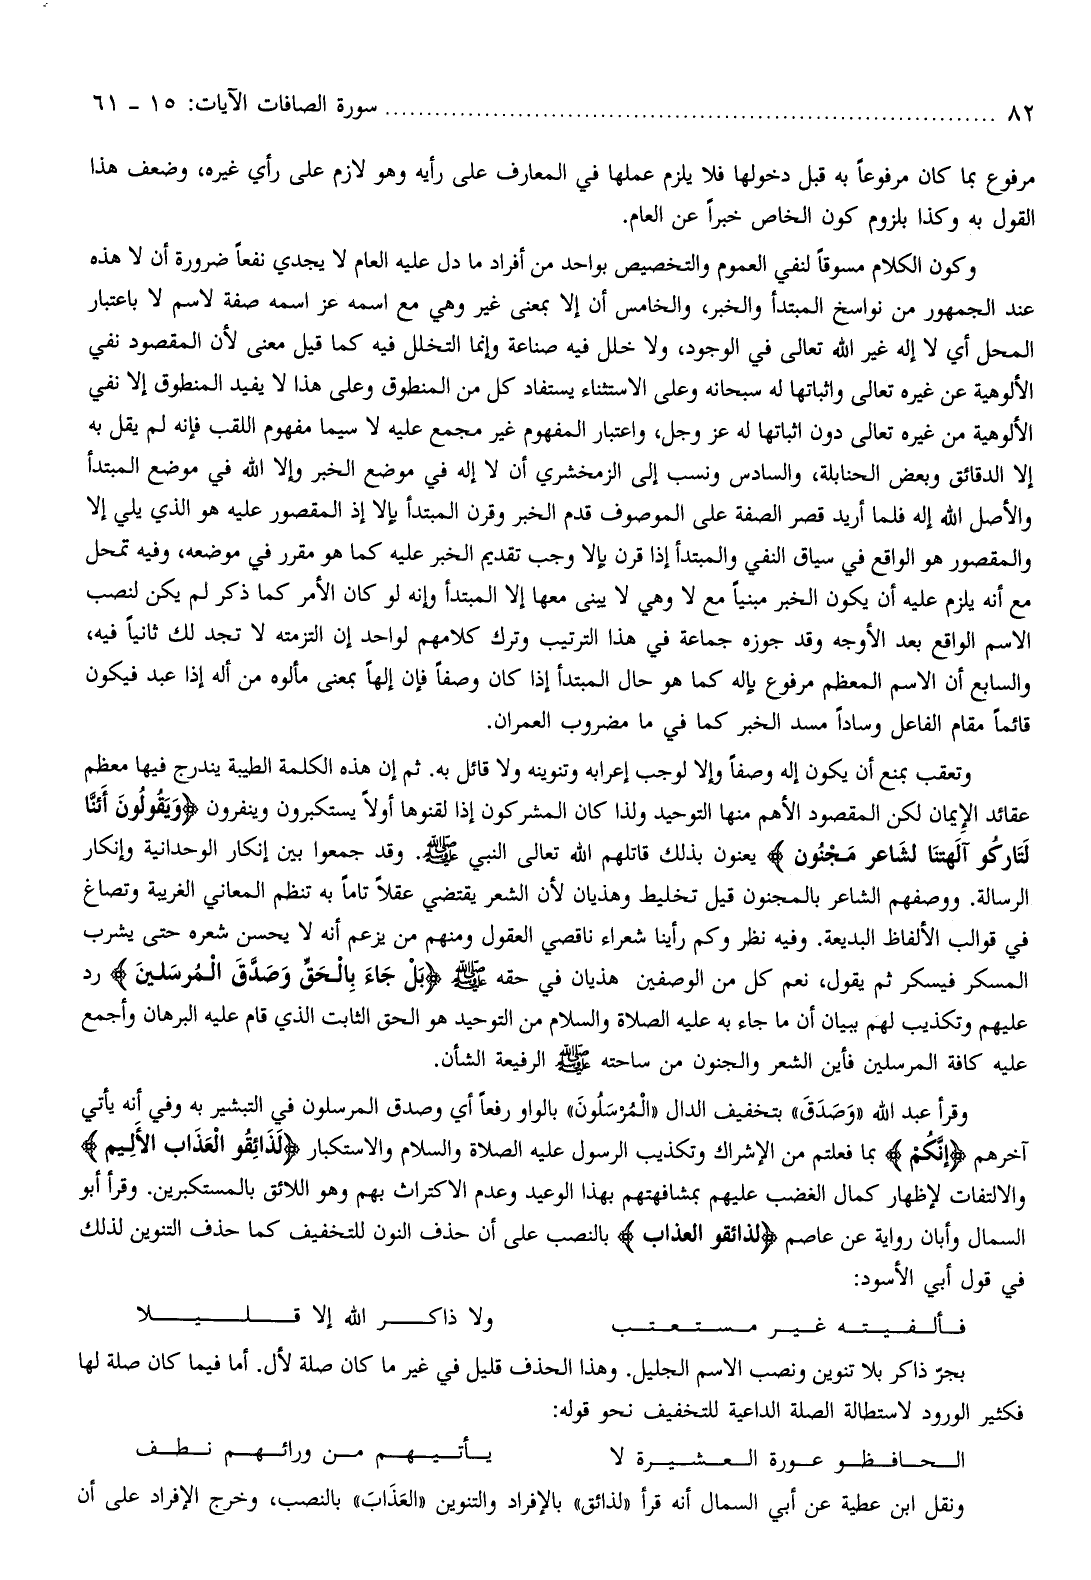 ٨٢ ........ سورة الصافات الآيات: ١٥ - ٦١
مرفوع بما كان مرفوعاً به قبل دخولها فلا يلزم عملها في المعارف على رأيه وهو لازم على رأي غيره، وضعف هذا
القول به وكذا بلزوم كون الخاص خبراً عن العام.
وكون الكلام مسوقاً لنفي العموم والتخصيص بواحد من أفراد ما دل عليه العام لا يجدي نفعاً ضرورة أن لا هذه
عند الجمهور من نواسخ المبتدأ والخبر، والخامس أن إلا بمعنى غير وهي مع اسمه عز اسمه صفة لاسم لا باعتبار
المحل أي لا إله غير الله تعالى في الوجود، ولا خلل فيه صناعة وإنما التخلل فيه كما قيل معنى لأن المقصود نفي
الألوهية عن غيره تعالى واثباتها له سبحانه وعلى الاستثناء يستفاد كل من المنطوق وعلى هذا لا يفيد المنطوق إلا نفي
الألوهية من غيره تعالى دون اثباتها له عز وجل، واعتبار المفهوم غير مجمع عليه لا سيما مفهوم اللقب فإنه لم يقل به
إلا الدقائق وبعض الحنابلة، والسادس ونسب إلى الزمخشري أن لا إله في موضع الخبر وإلا الله في موضع المبتدأ
والأصل الله إله فلما أريد قصر الصفة على الموصوف قدم الخبر وقرن المبتدأ بإلا إذ المقصور عليه هو الذي يلي إلا
والمقصور هو الواقع في سياق النفي والمبتدأ إذا قرن بإلا وجب تقديم الخبر عليه كما هو مقرر في موضعه، وفيه تمحل
مع أنه يلزم عليه أن يكون الخبر مبنياً مع لا وهي لا يبنى معها إلا المبتدأ وإنه لو كان الأمر كما ذكر لم يكن لنصب
الاسم الواقع بعد الأوجه وقد جوزه جماعة في هذا الترتيب وترك كلامهم لواحد إن التزمته لا تجد لك ثانياً فيه،
والسابع أن الاسم المعظم مرفوع بإله كما هو حال المبتدأ إذا كان وصفاً فإن إلهاً بمعنى مألوه من أله إذا عبد فيكون
قائماً مقام الفاعل وساداً مسد الخبر كما في ما مضروب العمران.
وتعقب بمنع أن يكون إله وصفاً وإلا لوجب إعرابه وتنوينه ولا قائل به. ثم إن هذه الكلمة الطيبة يندرج فيها معظم
عقائد الإيمان لكن المقصود الأهم منها التوحيد ولذا كان المشركون إذا لقنوها أولاً يستكبرون وينفرون ﴿وَيَقُولُونَ أَئنَّا
لَتَاركُو آلَهتنَا لشَاعر مَجْنُون﴾ يعنون بذلك قاتلهم الله تعالى النبي ﷺ. وقد جمعوا بين إنكار الوحدانية وإنكار
الرسالة. ووصفهم الشاعر بالمجنون قيل تخليط وهذيان لأن الشعر يقتضي عقلاً تاماً به تنظم المعاني الغريبة وتصاغ
في قوالب الألفاظ البديعة. وفيه نظر وكم رأينا شعراء ناقصي العقول ومنهم من يزعم أنه لا يحسن شعره حتى يشرب
المسكر فيسكر ثم يقول، نعم كل من الوصفين هذيان في حقه ﷺ ﴿بَلْ جَاءَ بِالْحَقِّ وَصَدَّقَ الْمُرسَلينَ﴾ رد
عليهم وتكذيب لهم ببيان أن ما جاء به عليه الصلاة والسلام من التوحيد هو الحق الثابت الذي قام عليه البرهان وأجمع
عليه كافة المرسلين فأين الشعر والجنون من ساحته ﷺ الرفيعة الشأن.
وقرأ عبد الله «وَصَدَقَ» بتخفيف الدال «الْمُرْسَلُونَ» بالواو رفعاً أي وصدق المرسلون في التبشير به وفي أنه يأتي
آخرهم ﴿إنَّكُمْ﴾ بما فعلتم من الإشراك وتكذيب الرسول عليه الصلاة والسلام والاستكبار ﴿لَذَائِقُو الْعَذَاب الأَلِيم﴾
والالتفات لإظهار كمال الغضب عليهم بمشافهتهم بهذا الوعيد وعدم الاكتراث بهم وهو اللائق بالمستكبرين. وقرأ أبو
السمال وأبان رواية عن عاصم ﴿لذائقو العذاب﴾ بالنصب على أن حذف النون للتخفيف كما حذف التنوين لذلك
في قول أبي الأسود:
فألفيته غير مستعتب ولا ذاكر الله إلا قليلا
بجرّ ذاكر بلا تنوين ونصب الاسم الجليل. وهذا الحذف قليل في غير ما كان صلة لأل. أما فيما كان صلة لها
فكثير الورود لاستطالة الصلة الداعية للتخفيف نحو قوله:
الحافظو عورة العشيرة لا يأتيهم من ورائهم نطف
ونقل ابن عطية عن أبي السمال أنه قرأ «لذائق» بالإفراد والتنوين «العَذَابَ» بالنصب، وخرج الإفراد على أن